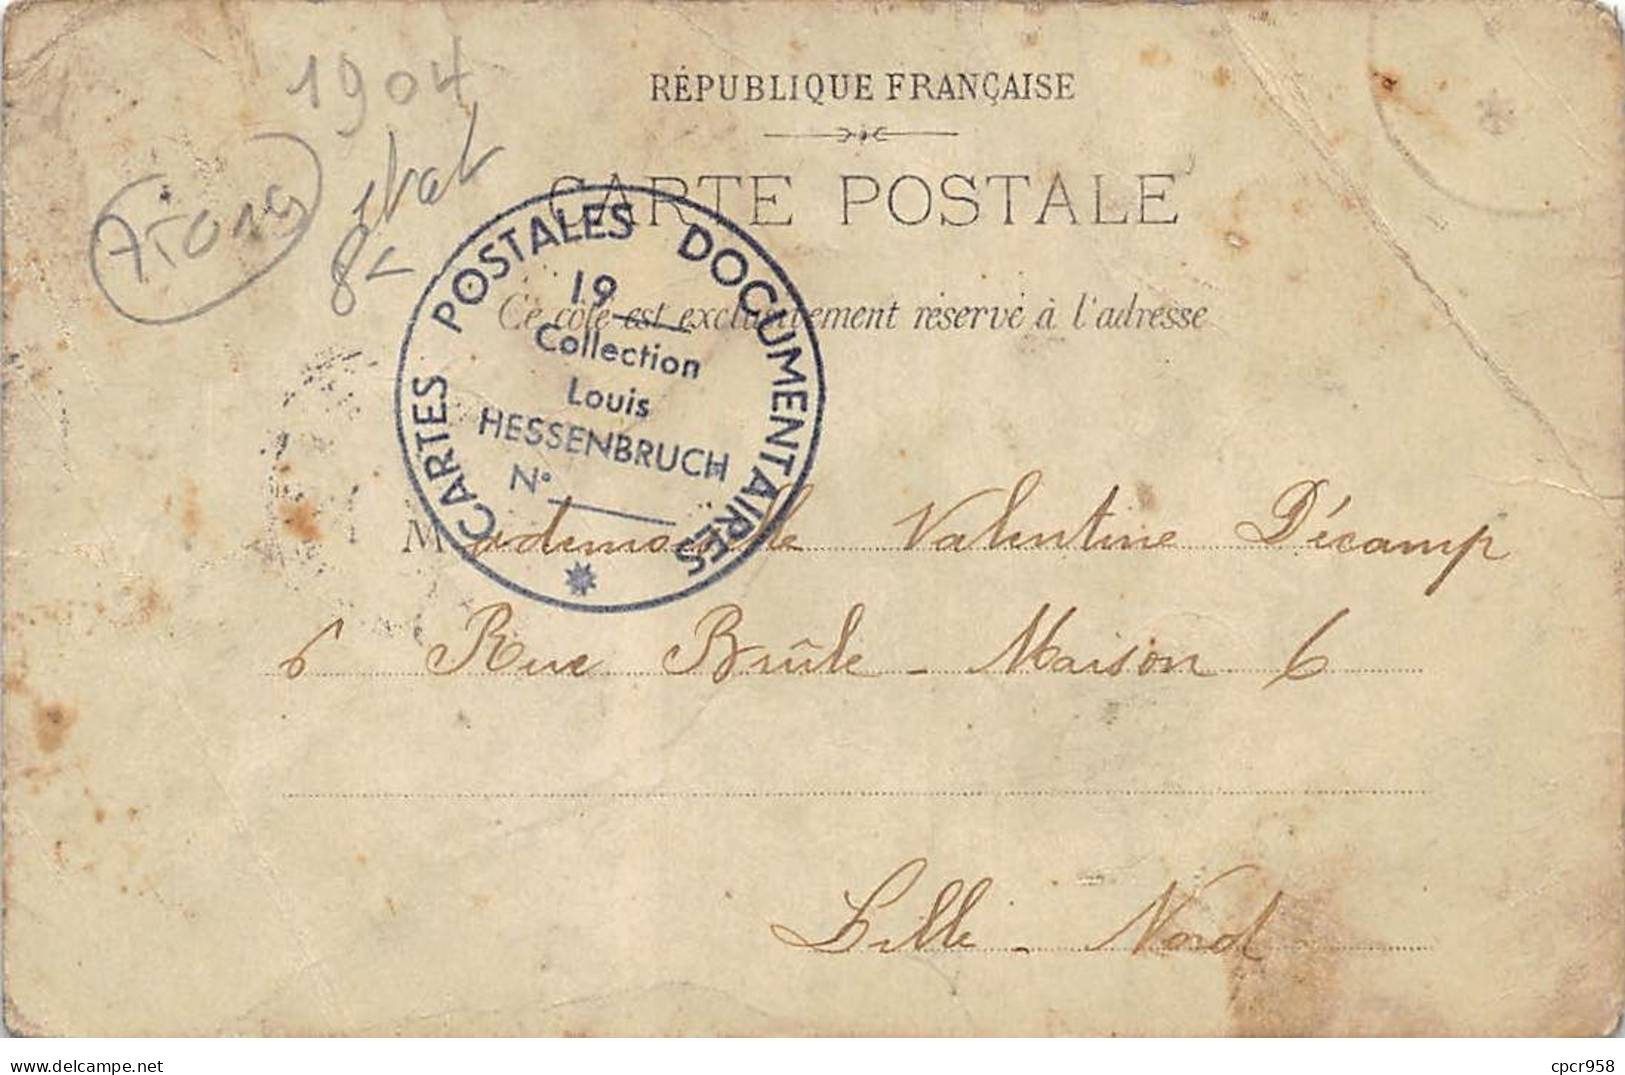 1904
RÉPUBLIQUE FRANÇAISE
CARTE POSTALE
Ce côté est exclusivement réservé à l'adresse
CARTES POSTALES DOCUMENTAIRES
19
Collection
Louis
HESSENBRUCH
N°
Mademoiselle Valentine Décamp
6 Rue Brûle - Maison 6
Lille - Nord
www.delcampe.net
cpcr958